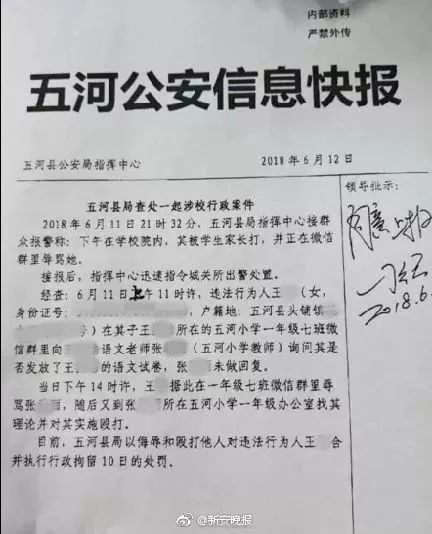 内部资料
严禁外传
五河公安信息快报
五河县公安局指挥中心
2018年6月12日
领导批示:
五河县局查处一起涉校行政案件
2018年6月11日21时32分,五河县局指挥中心接群
众报警称:下午在学校院内,其被学生家长打,并正在微信
群里辱骂她。
接报后,指挥中心迅速指令城关所出警处置。
经查:6月11日上午11时许,违法行为人王(女,
身份证号:,户籍地:五河县头铺镇
)在其子王所在的五河小学一年级七班微
信群里向王的语文老师张(五河小学教师)询问其是
否发放了王的语文试卷,张未做回复。
当日下午14时许,王据此在一年级七班微信群里辱
骂张丽,随后又到张所在五河小学一年级办公室找其
理论并对其实施殴打。
目前,五河县局以侮辱和殴打他人对违法行为人王合
并执行行政拘留10日的处罚。
2018.6
@新安晚报